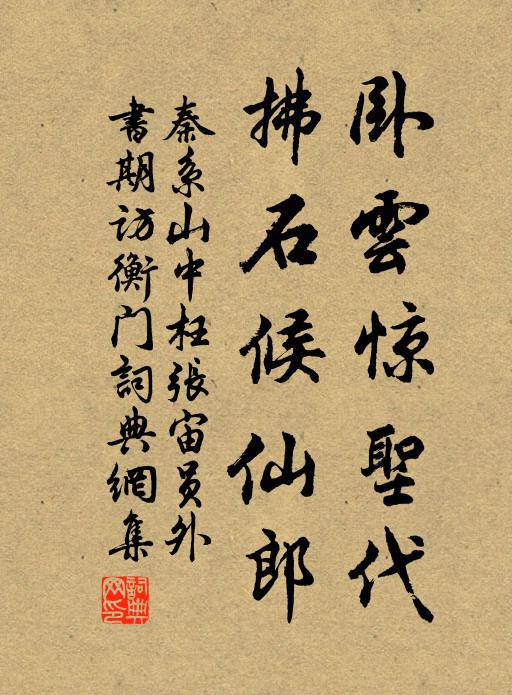 卧雲惊聖代
拂石候仙郎
秦系山中枉張宙員外
書期訪衡门詞典網集
詞典网印